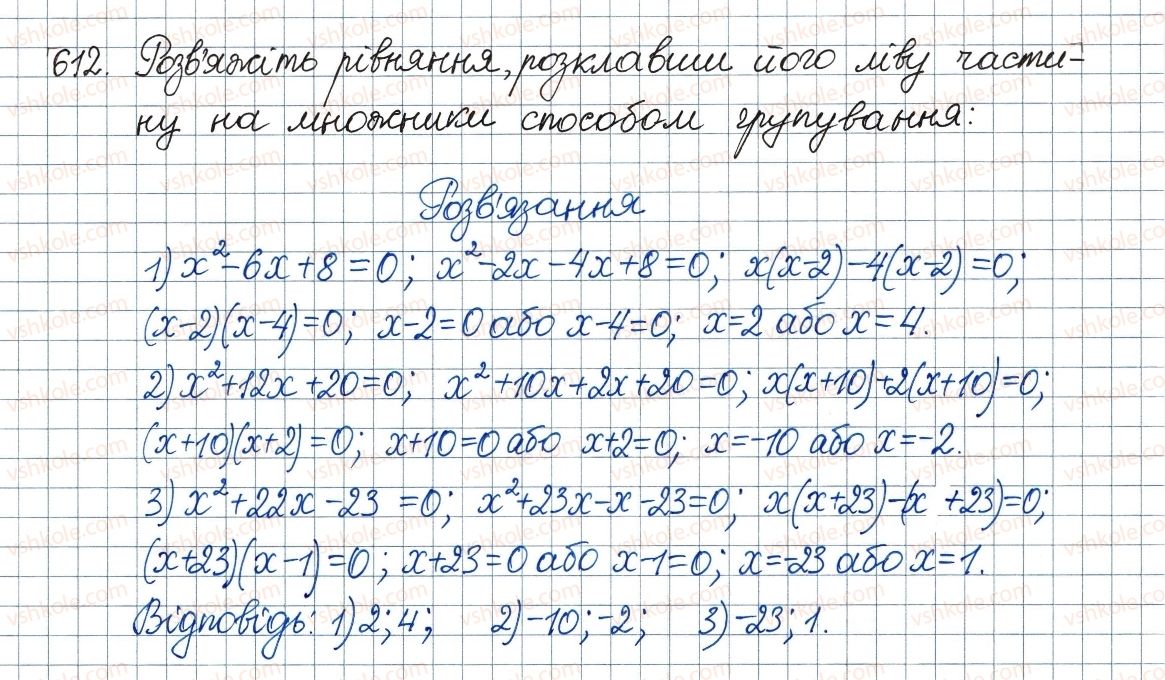 612. Розв'яжіть рівняння, розклавши його ліву части-
ну на множники способом групування:
Розв'язання
1) x²-6x+8=0; x²-2x-4x+8=0; x(x-2)-4(x-2)=0;
(x-2)(x-4)=0; x-2=0 або x-4=0; x=2 або x=4.
2) x²+12x+20=0; x²+10x+2x+20=0; x(x+10)+2(x+10)=0;
(x+10)(x+2)=0; x+10=0 або x+2=0; x=-10 або x=-2.
3) x²+22x-23=0; x²+23x-x-23=0; x(x+23)-(x+23)=0;
(x+23)(x-1)=0; x+23=0 або x-1=0; x=-23 або x=1.
Відповідь: 1) 2; 4; 2) -10; -2; 3) -23; 1.